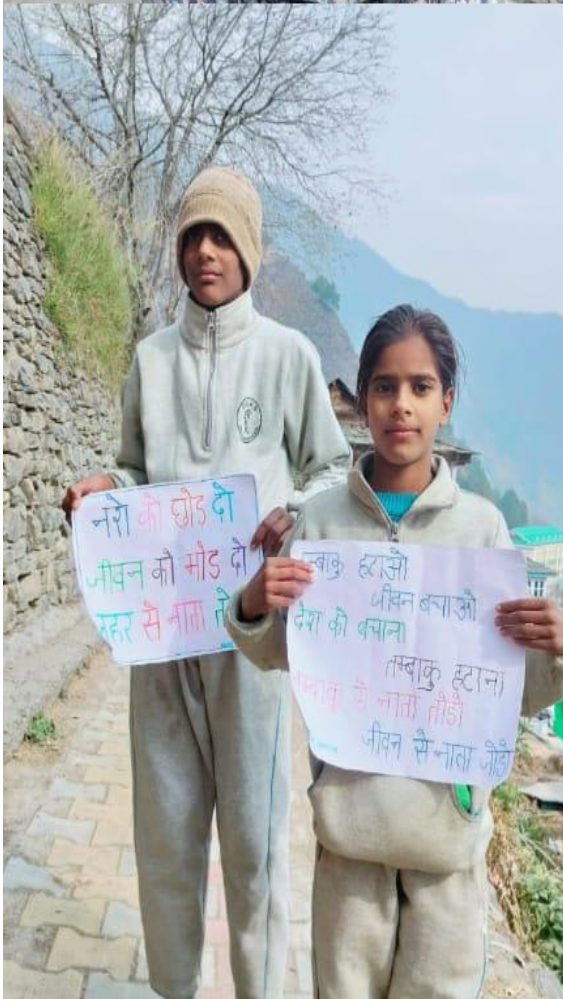 नशे को छोड दो
जीवन को मोड दो
जहर से नाता
तम्बाकु हटाओ
जीवन बचाओ
देश को बचाना
तम्बाकु हटाना
तम्बाकु से नाता तोडो
जीवन से नाता जोडो